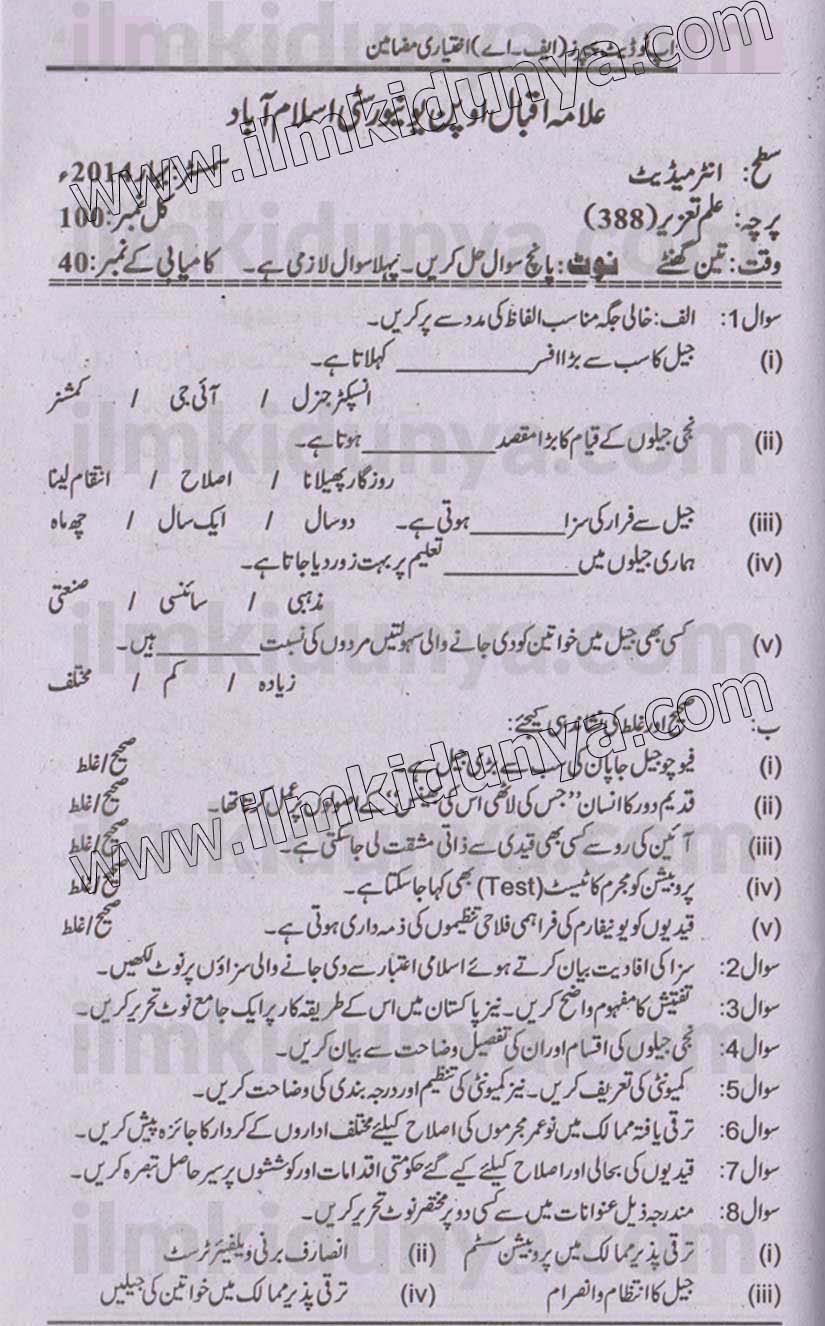 اپ ٹو ڈیٹ پیپرز (ایف۔اے) اختیاری مضامین
علامہ اقبال اوپن یونیورسٹی اسلام آباد
سطح: انٹرمیڈیٹ سمسٹر: بہار 2014ء
پرچہ: علم تعزیر (388) کل نمبر: 100
وقت: تین گھنٹے نوٹ: پانچ سوال حل کریں۔ پہلا سوال لازمی ہے۔ کامیابی کے نمبر: 40
سوال 1: الف: خالی جگہ مناسب الفاظ کی مدد سے پر کریں۔
(i) جیل کا سب سے بڑا افسر __________ کہلاتا ہے۔
انسپکٹر جنرل / آئی جی / کمشنر
(ii) نجی جیلوں کے قیام کا بڑا مقصد __________ ہوتا ہے۔
روزگار پھیلانا / اصلاح / انتقام لینا
(iii) جیل سے فرار کی سزا _______ ہوتی ہے۔ دو سال / ایک سال / چھ ماہ
(iv) ہماری جیلوں میں __________ تعلیم پر بہت زور دیا جاتا ہے۔
مذہبی / سائنسی / صنعتی
(v) کسی بھی جیل میں خواتین کو دی جانے والی سہولتیں مردوں کی نسبت ________ ہیں۔
زیادہ / کم / مختلف
ب: صحیح اور غلط کی نشاندہی کیجئے:
(i) فیوچو جیل جاپان کی سب سے بڑی جیل ہے۔ صحیح/غلط
(ii) قدیم دور کا انسان ”جس کی لاٹھی اس کی بھینس“ کے اصولوں پر عمل کرتا تھا۔ صحیح/غلط
(iii) آئین کی رو سے کسی بھی قیدی سے ذاتی مشقت لی جا سکتی ہے۔ صحیح/غلط
(iv) پروبیشن کو مجرم کا ٹیسٹ (Test) بھی کہا جا سکتا ہے۔ صحیح/غلط
(v) قیدیوں کو یونیفارم کی فراہمی فلاحی تنظیموں کی ذمہ داری ہوتی ہے۔ صحیح/غلط
سوال 2: سزا کی افادیت بیان کرتے ہوئے اسلامی اعتبار سے دی جانے والی سزاؤں پر نوٹ لکھیں۔
سوال 3: تفتیش کا مفہوم واضح کریں۔ نیز پاکستان میں اس کے طریقہ کار پر ایک جامع نوٹ تحریر کریں۔
سوال 4: نجی جیلوں کی اقسام اور ان کی تفصیل وضاحت سے بیان کریں۔
سوال 5: کمیونٹی کی تعریف کریں۔ نیز کمیونٹی کی تنظیم اور درجہ بندی کی وضاحت کریں۔
سوال 6: ترقی یافتہ ممالک میں نوعمر مجرموں کی اصلاح کیلئے مختلف اداروں کے کردار کا جائزہ پیش کریں۔
سوال 7: قیدیوں کی بحالی اور اصلاح کیلئے کیے گئے حکومتی اقدامات اور کوششوں پر سیر حاصل تبصرہ کریں۔
سوال 8: مندرجہ ذیل عنوانات میں سے کسی دو پر مختصر نوٹ تحریر کریں۔
(i) ترقی پذیر ممالک میں پروبیشن سسٹم (ii) انصار برنی ویلفیئر ٹرسٹ
(iii) جیل کا انتظام و انصرام (iv) ترقی پذیر ممالک میں خواتین کی جیلیں
www.ilmkidunya.com
www.ilmkidunya.com
ilmkidunya.com
ilmkidunya.com
ilmkidunya.com
ilmkidunya.com
ilmkidunya.com
ilmkidunya.com
ilmkidunya.com